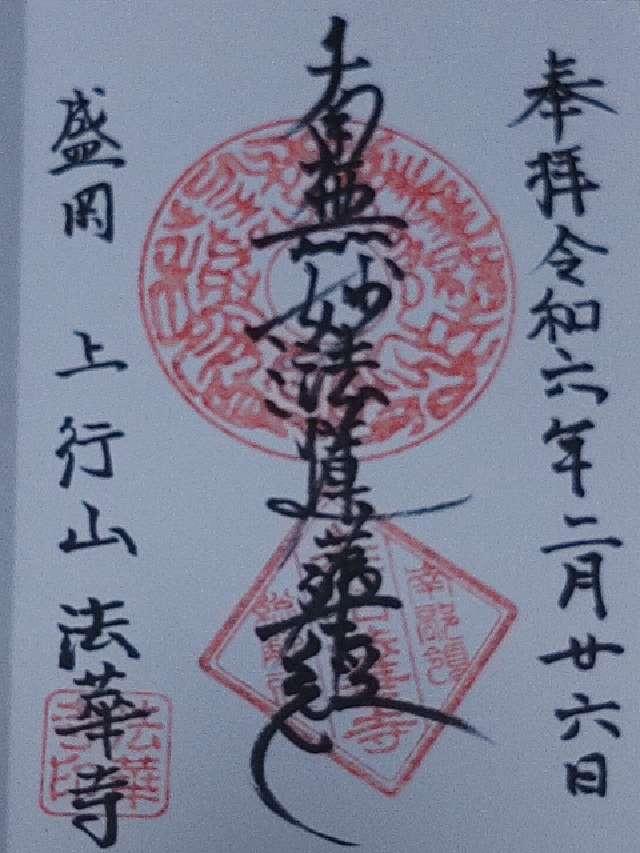 奉拝令和六年二月廿六日
南無妙法蓮華經
盛岡 上行山 法華寺
法華